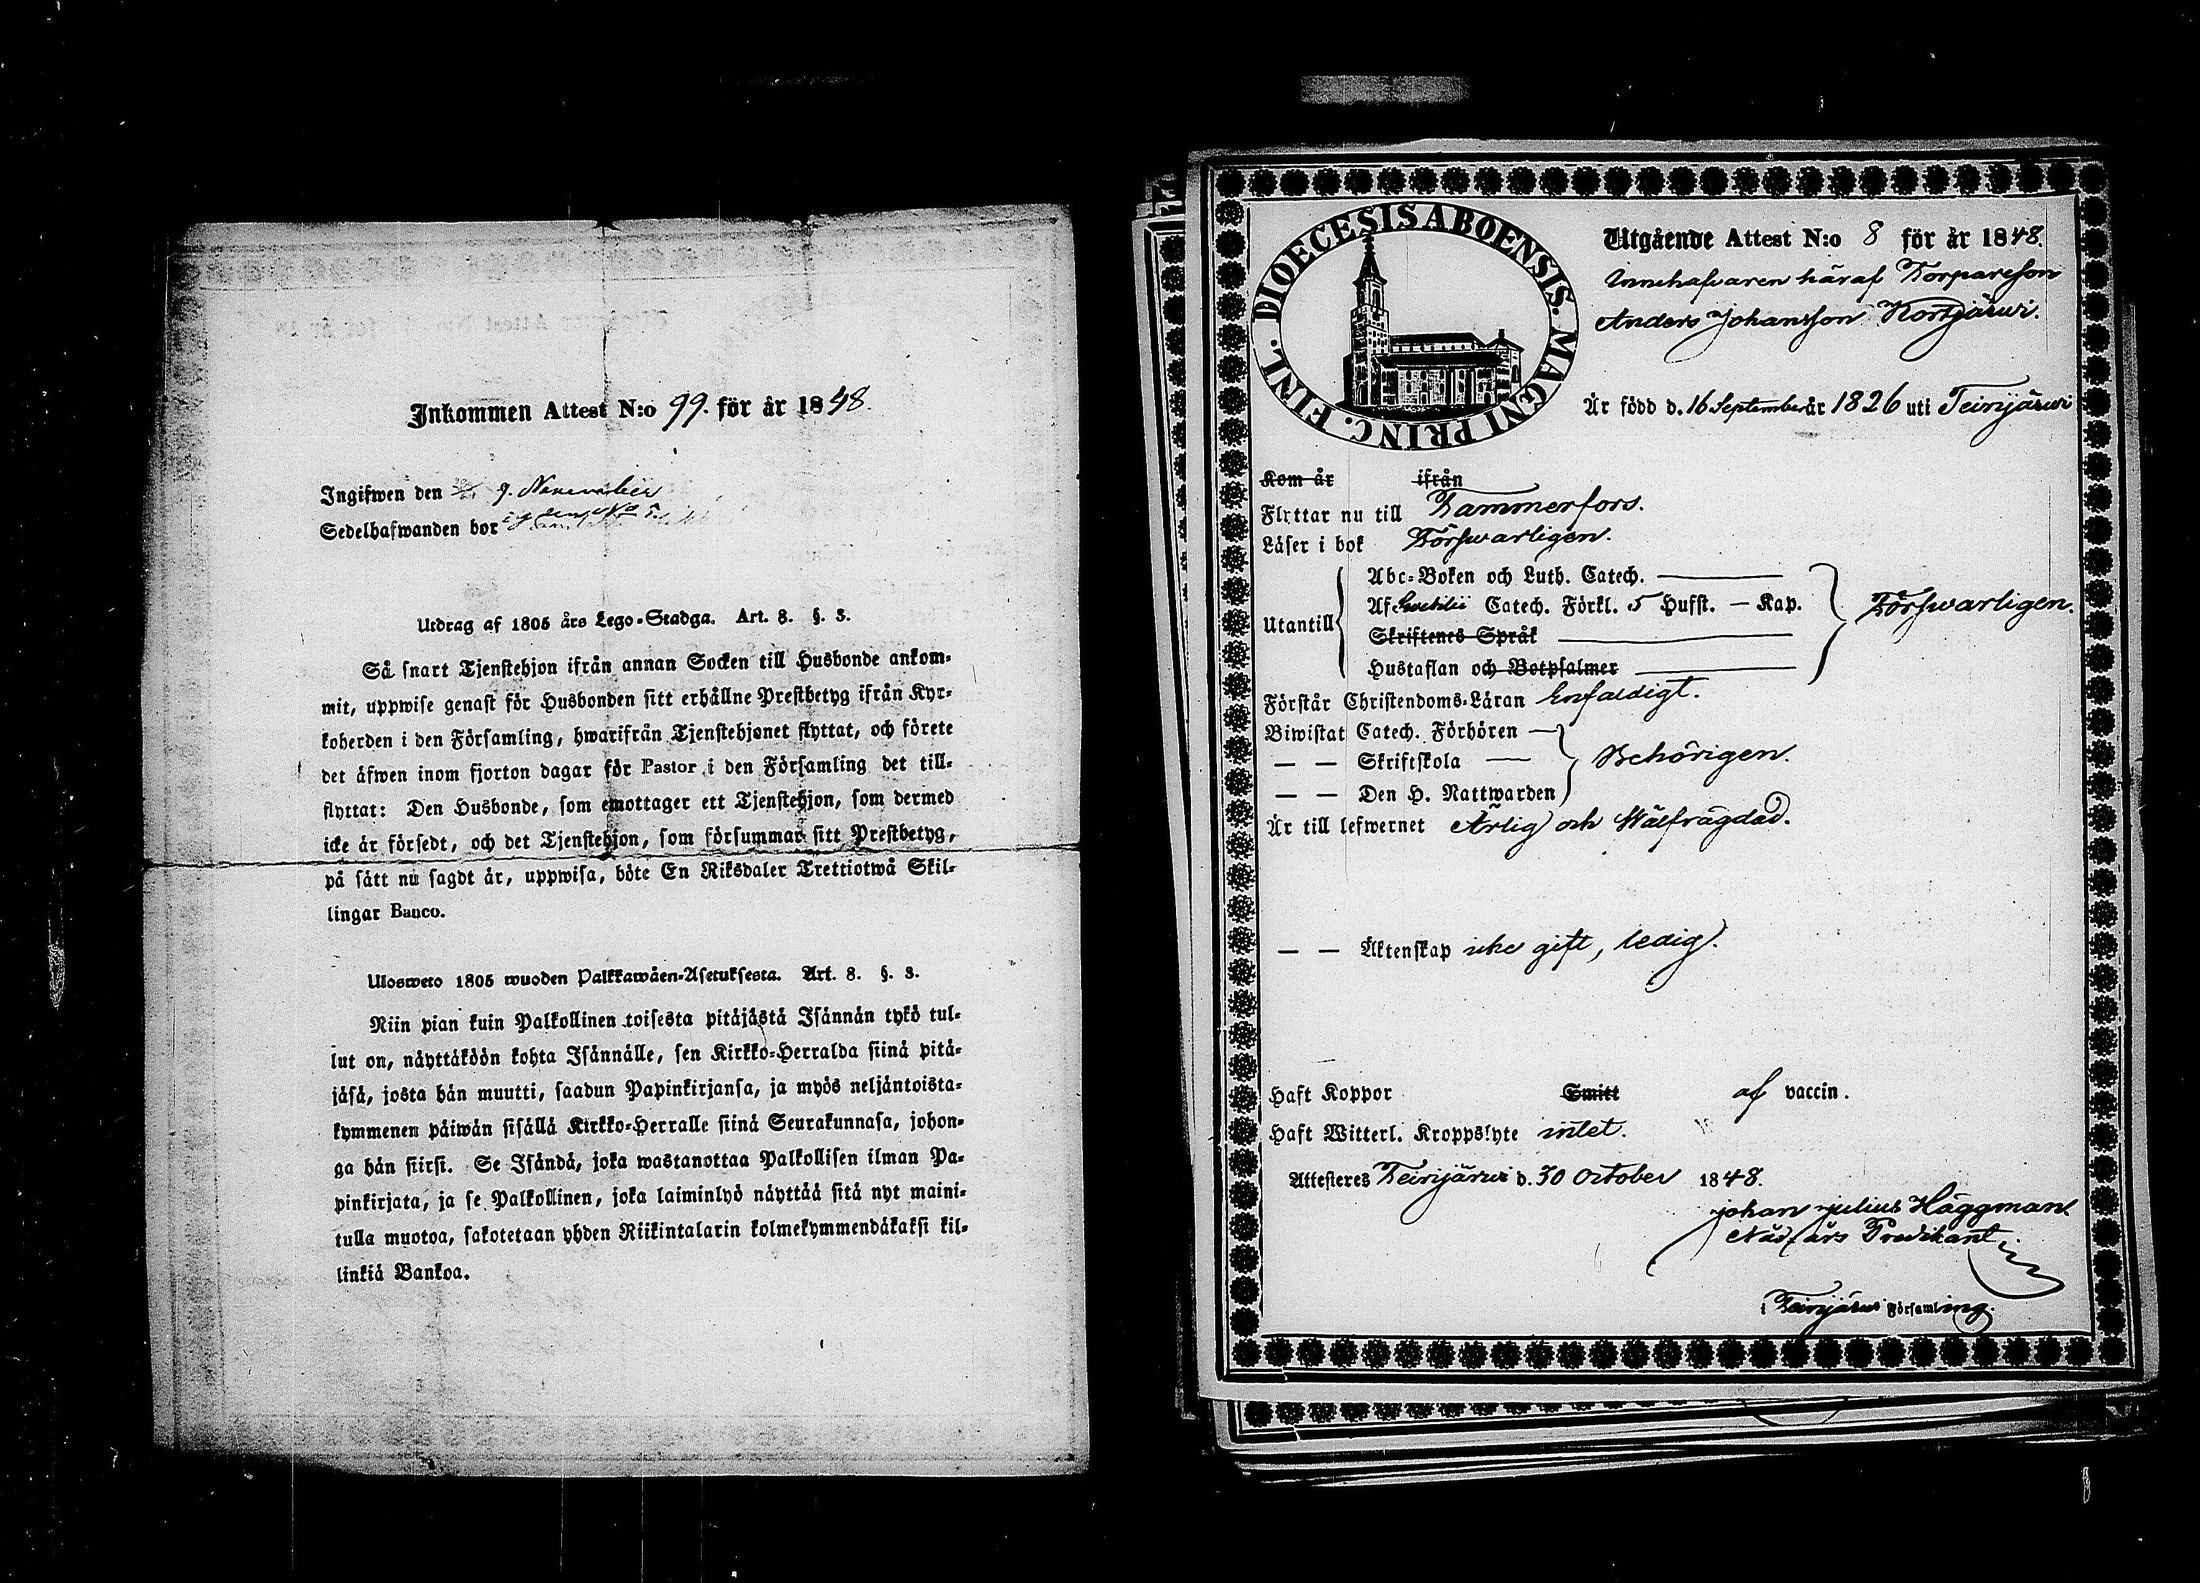 Inkommen Attest N:o 99. för år 1848.
Ingifwen den 9. November
Sedelhafwanden bor
Utdrag af 1805 års Lego-Stadga. Art. 8. §. 3.
Så snart Tjenstehjon ifrån annan Socken till Husbonde ankom-
mit, uppwise genast för Husbonden sitt erhållne Prestbetyg ifrån Kyr-
koherden i den Församling, hwarifrån Tjenstehjonet flyttat, och förete
det äfwen inom fjorton dagar för Pastor i den Församling det till-
flyttat: Den Husbonde, som emottager ett Tjenstehjon, som dermed
icke är försedt, och det Tjenstehjon, som försummar sitt Prestbetyg,
på sätt nu sagdt är, uppwisa, böte En Riksdaler Trettiotwå Skil-
lingar Banco.
Ulosweto 1805 wuoden Palkkawäen-Asetuksesta. Art. 8. §. 3.
Niin pian kuin Palkollinen toisesta pitäjästä Isännän tykö tul-
lut on, näyttäköön kohta Isännälle, sen Kirkko-Herralda siinä pitä-
jäsä, josta hän muutti, saadun Papinkirjansa, ja myös neljäntoista-
kymmenen päiwän sisällä Kirkko-Herralle siinä Seurakunnasa, johon-
ga hän siirsi. Se Isändä, joka wastanottaa Palkollisen ilman Pa-
pinkirjata, ja se Palkollinen, joka laiminlyö näyttää sitä nyt maini-
tulla muotoa, sakotetaan yhden Riikintalarin kolmekymmendäkaksi kil-
linkiä Bankoa.
DIOECESIS ABOENSIS. MAGNI PRINC. FINL.
Utgående Attest N:o 8 för år 1848.
Innehafvaren häraf Torpareson
Anders Johansson Kortjärvi.
Är född d. 16 September år 1826 uti Teirijärvi
Kom år ifrån
Flyttar nu till Tammerfors.
Läser i bok Försvarligen.
Utantill
Abc-Boken och Luth. Catech.
Af Svebilii Catech. Förkl. 5 Hufst. — Kap.
Skriftenes Språk
Hustaflan och Botpsalmer
Försvarligen.
Förstår Christendoms-Läran Enfaldigt.
Biwistat Catech. Förhören
— — Skriftskola
— — Den H. Nattwarden
Behörigen.
Är till lefwernet Ärlig och Wälfrägdad.
— — Äktenskap icke gift, ledig.
Haft Koppor Smitt af vaccin.
Haft Witterl. Kroppslyte intet.
Attesteres Teirijärvi d. 30 October 1848.
Johan Julius Häggman.
Nådårs Predikant
i Teirijärvi Församling.